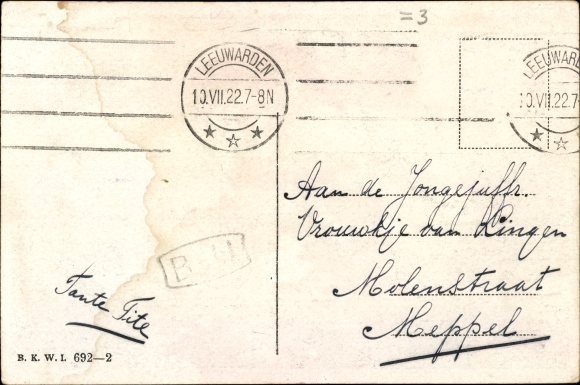 =3
LEEUWARDEN
10.VII.22.7-8N
LEEUWARDEN
10.VII.22.7-
Aan de Jongejuffr.
Vrouwkje van Lingen
Molenstraat
Meppel
Tante Tite
B. K. W. I. 692—2